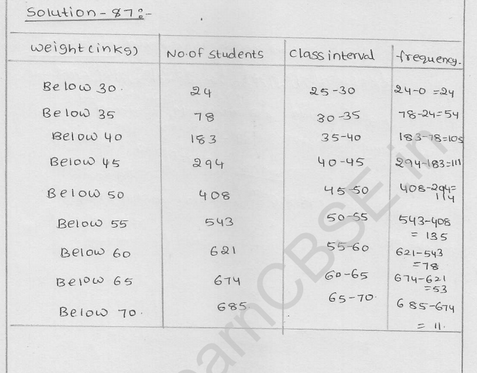 Solution-87:-
Weight(in kg) No. of students Class interval frequency.
Below 30 24 25-30 24-0=24
Below 35 78 30-35 78-24=54
Below 40 183 35-40 183-78=105
Below 45 294 40-45 294-183=111
Below 50 408 45-50 408-294=
114
Below 55 543 50-55 543-408
= 135
Below 60 621 55-60 621-543
=78
Below 65 674 60-65 674-621
=53
Below 70. 685 65-70. 685-674
= 11.
earnCBSE.in